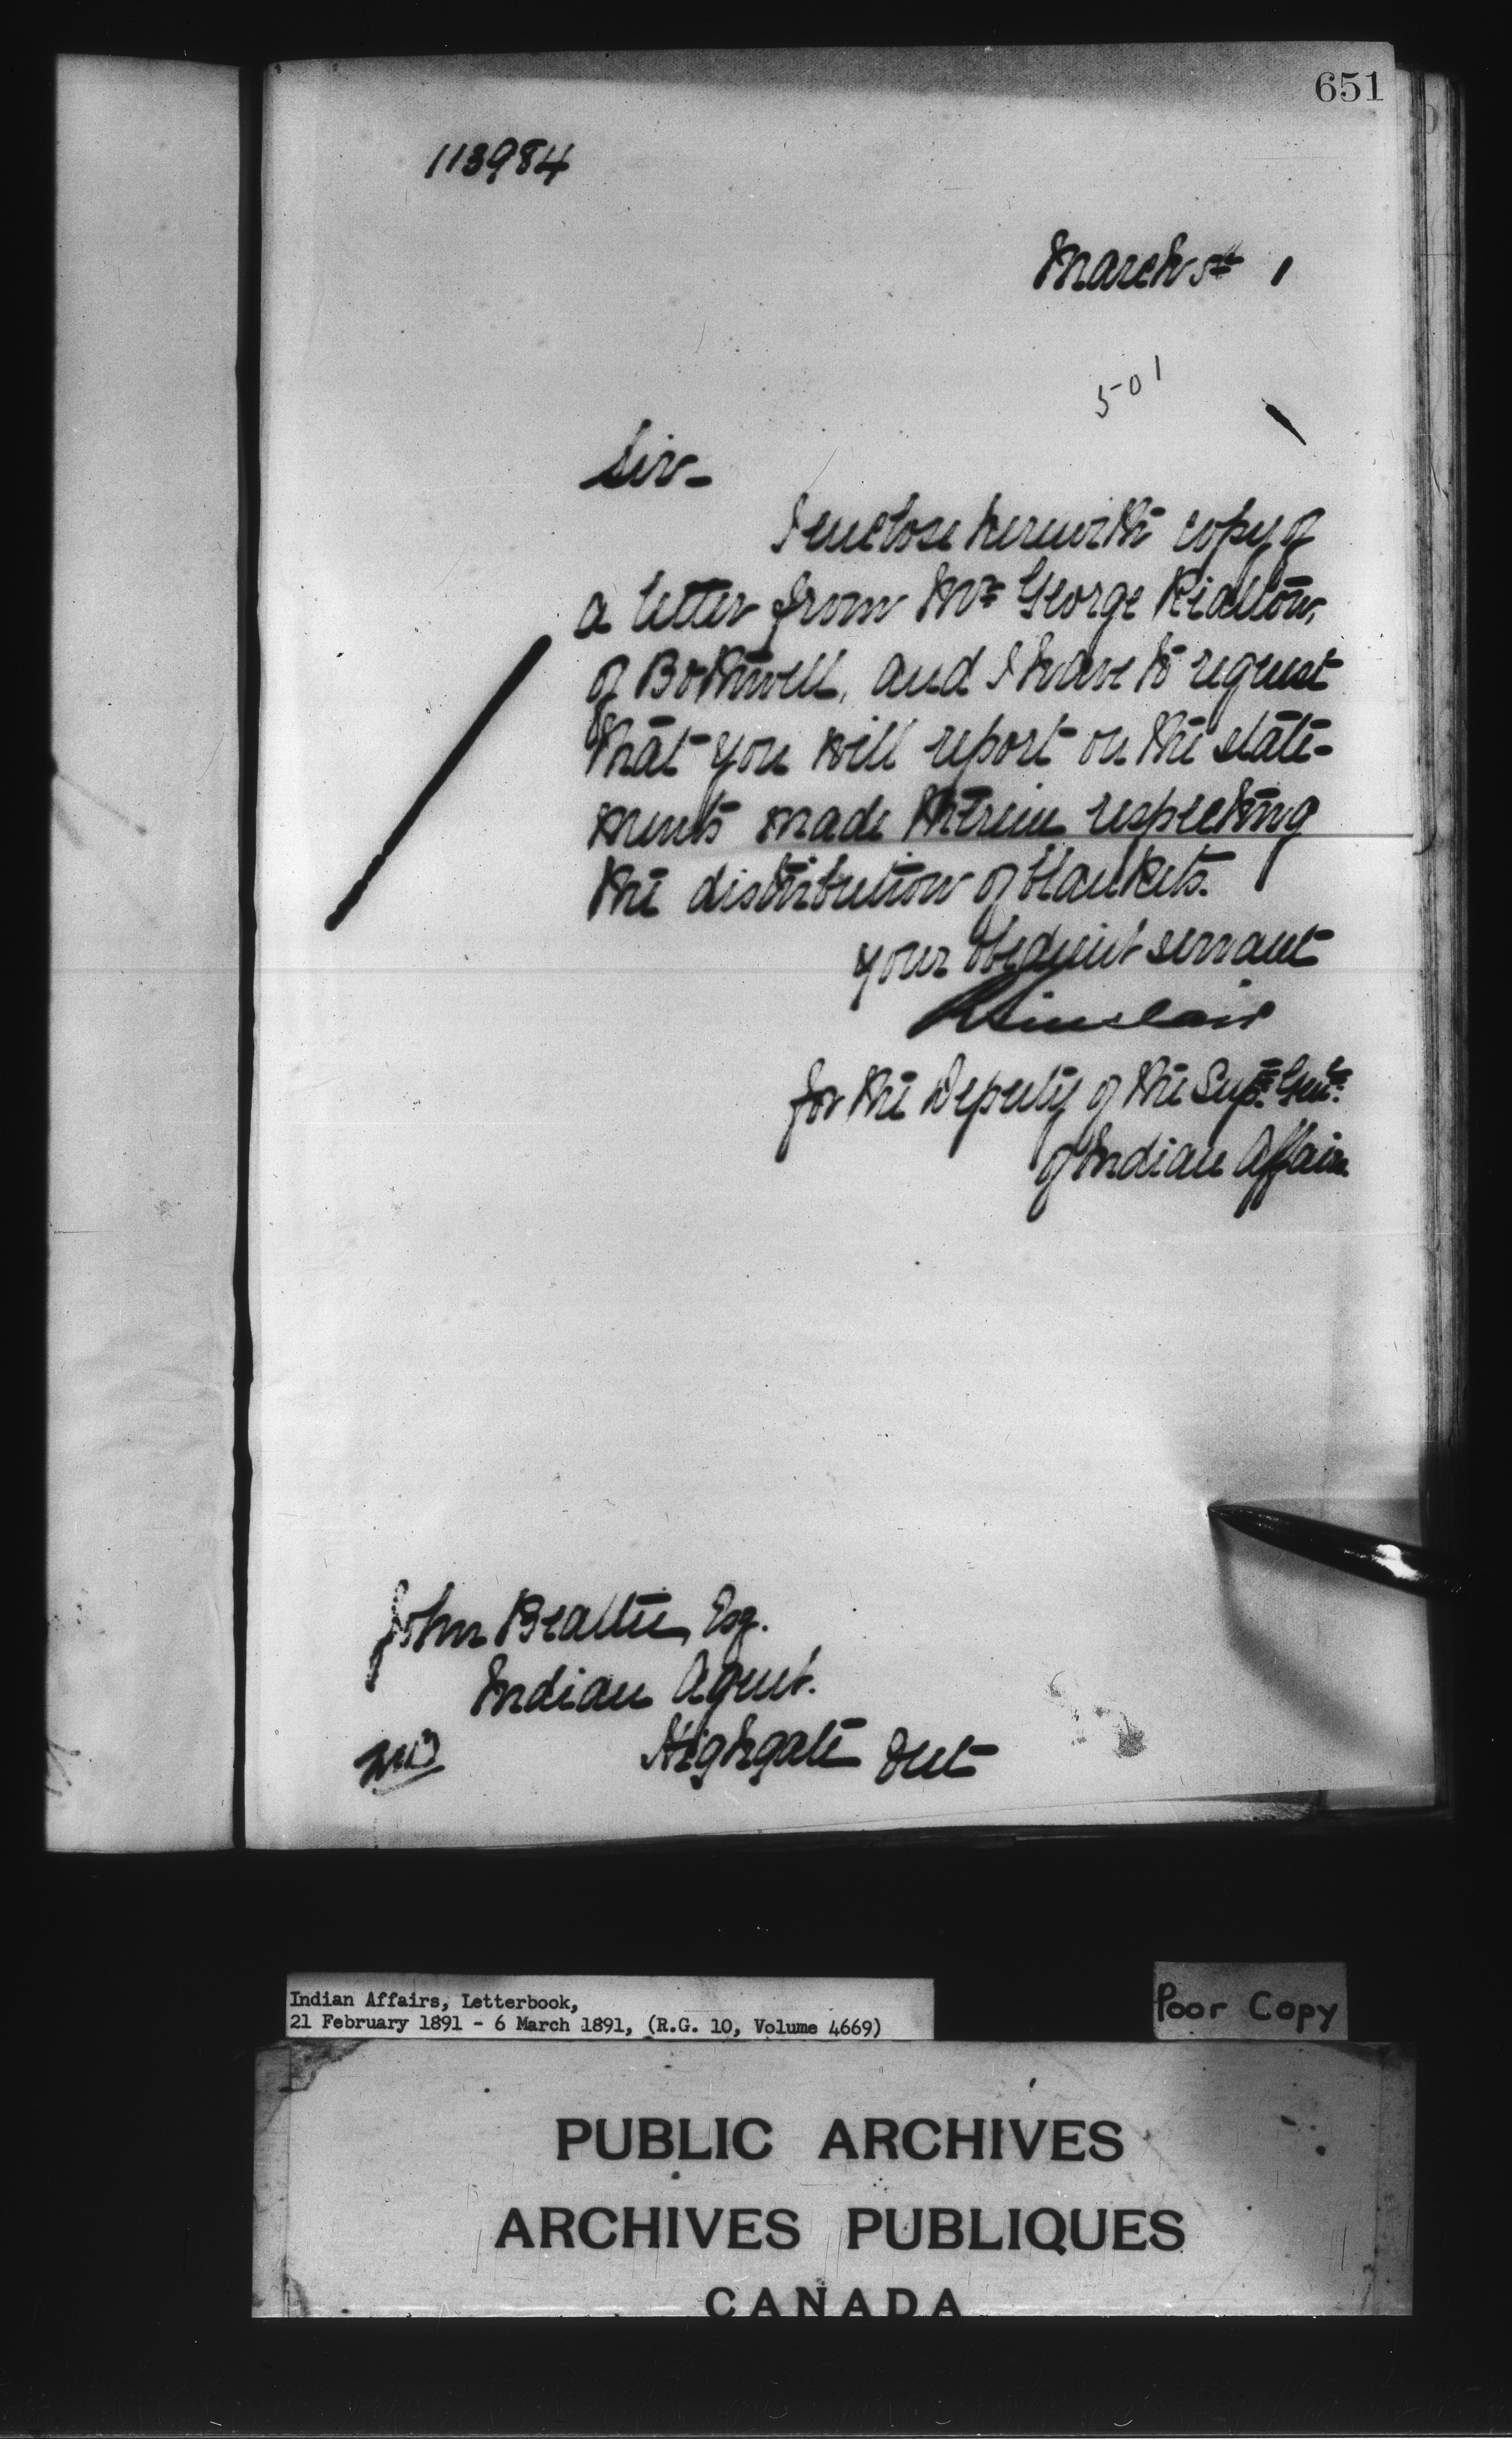 651
113984
March 5th 1
501
Sir-
I enclose herewith copy of
a letter from Mr George
of Bothwell, and I have to request
that you will report on the state-
ments made therein respecting
the distribution of blankets.
your obedient servant
R Sinclair
for the Deputy of the Supt. Genl.
of Indian Affairs
John Beattie, Esq.
Indian Agent.
Highgate Ont
Indian Affairs, Letterbook,
21 February 1891 - 6 March 1891, (R.G. 10, Volume 4669)
Poor Copy
PUBLIC ARCHIVES
ARCHIVES PUBLIQUES
CANADA